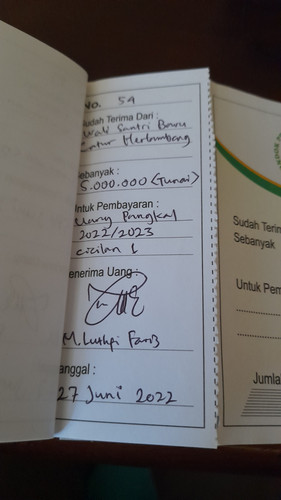 No. 54
Sudah Terima Dari :
Wali Santri Baru
Catur Herlambang
Sebanyak :
5.000.000 (Tunai)
Untuk Pembayaran :
Uang Pangkal
2022/2023
cicilan 1
Penerima Uang :
M. Luthfi Farib
anggal :
27 Juni 2022
Sudah Terim
Sebanyak
Untuk Pem
Jumla